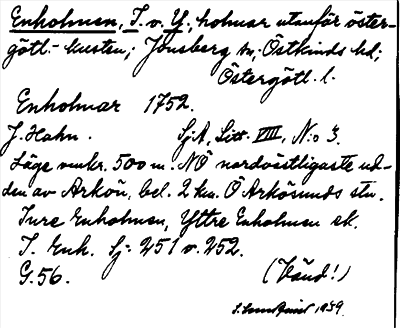 Enholmen, I. o. Y., holmar utanför öster-
götl.-kusten; Jönsberg sn, Östkinds hd;
Östergötl. l.
Enholmar 1752.
J. Hahn. SjA, Litt. VIII, N:o 3.
Läge omkr. 500 m. NÖ nordostligaste ud-
den av Arkön, bel. 2 km. Ö Arkösunds stn.
Inre Enholmen, Yttre Enholmen ek.
I. Enk. Sj: 251 o. 252.
G. 56. (Vänd!)
1939.